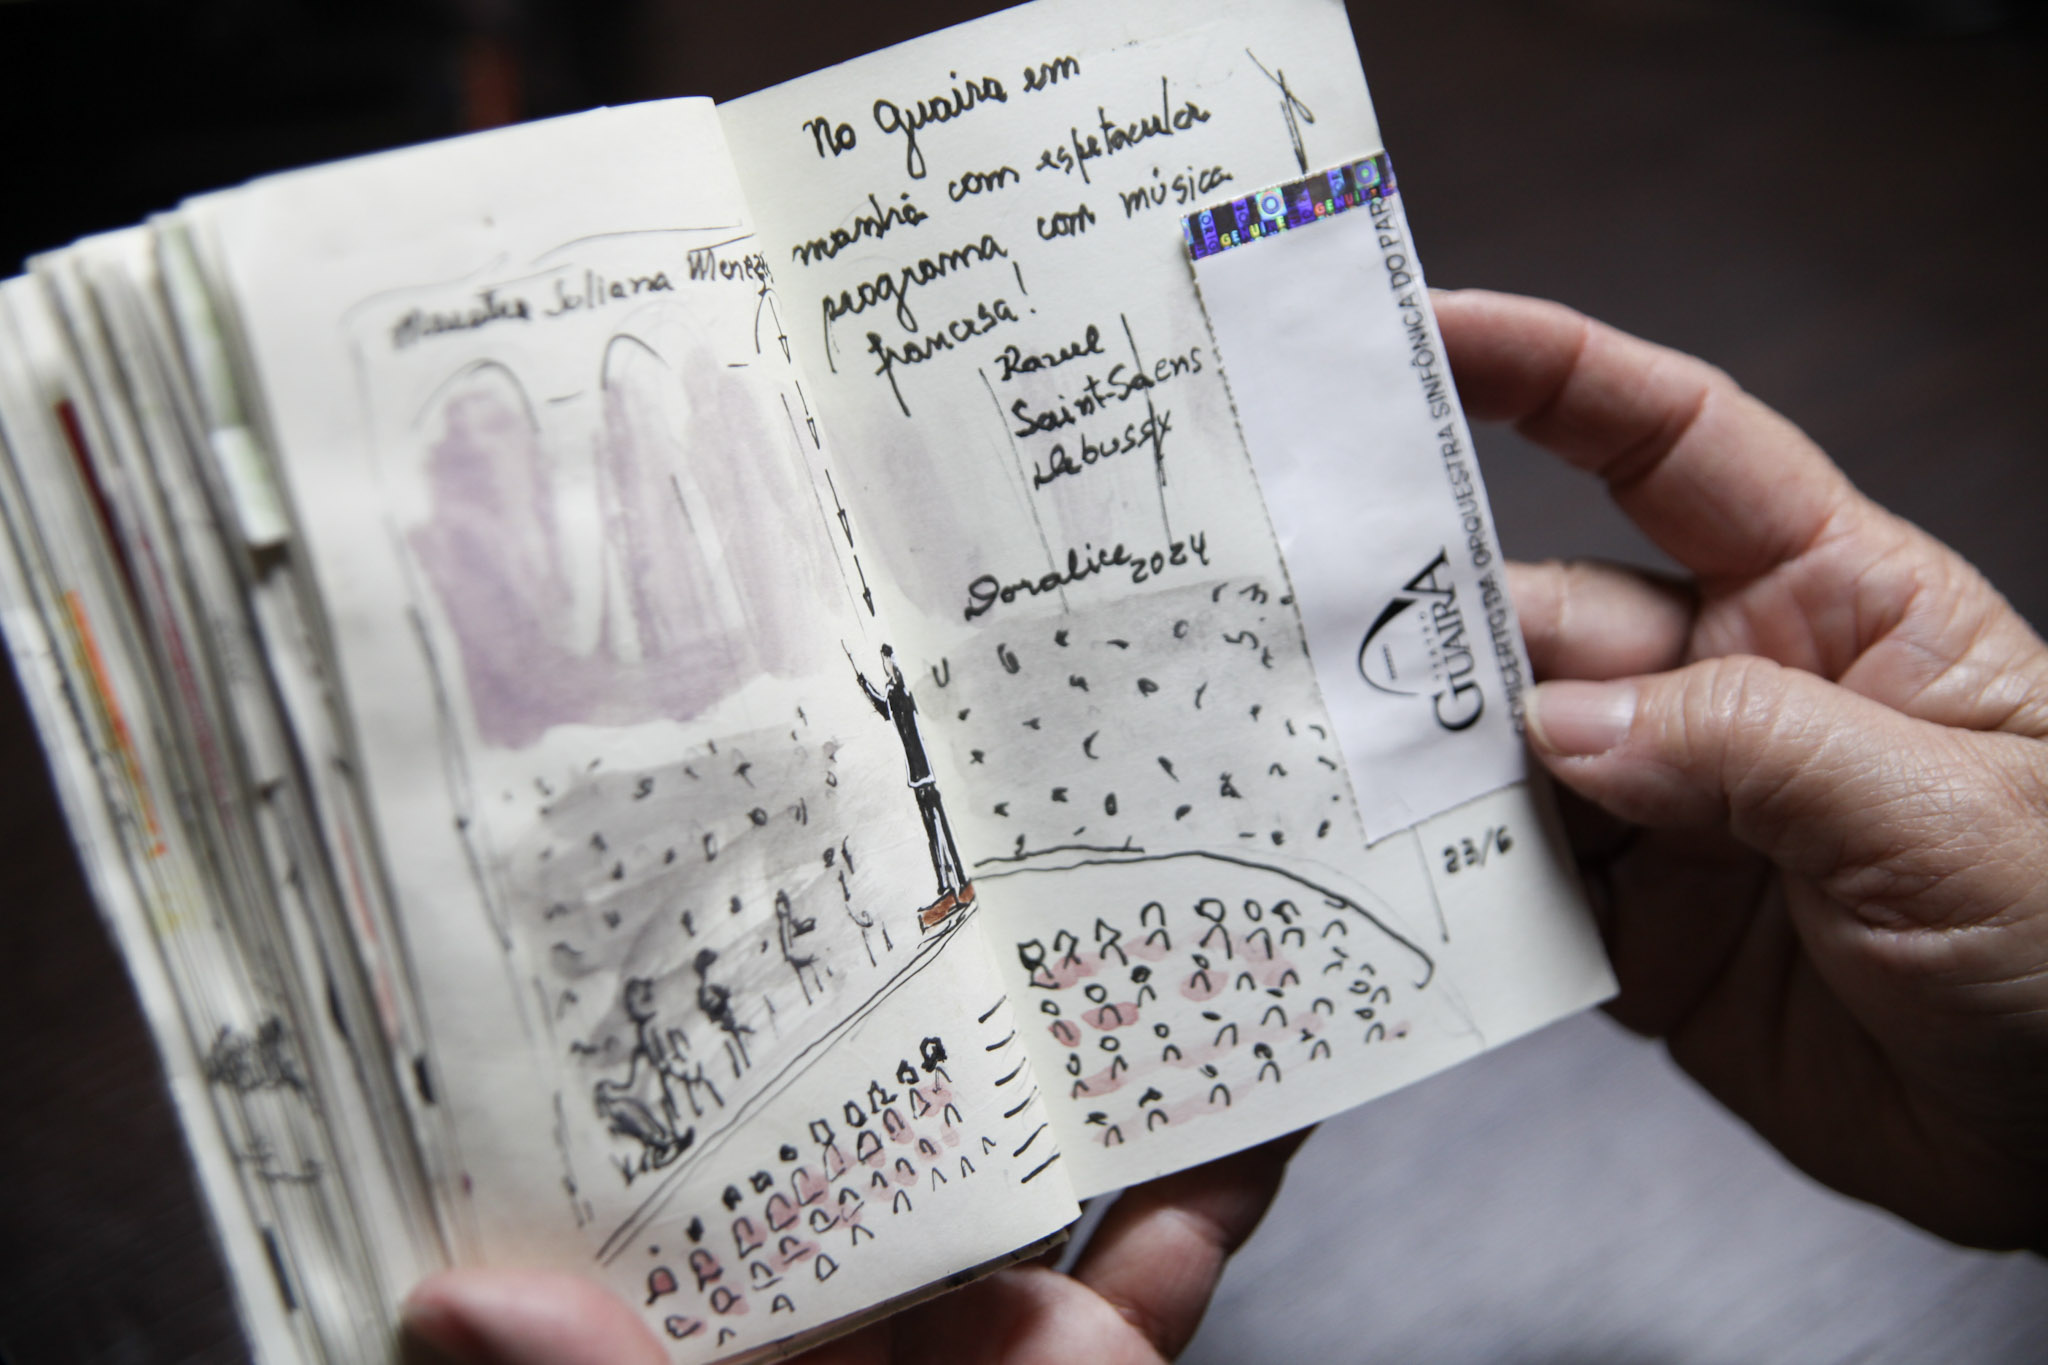 Maestra Juliana Menezes
No Guaira em
manhã com espetacular
programa com música
francesa!
Ravel
Saint-Saens
Debussy
Doralice 2024
GENUINE GENUI
TEATRO
GUAIRA
CONCERTO DA ORQUESTRA SINFÔNICA DO PAR
23/6